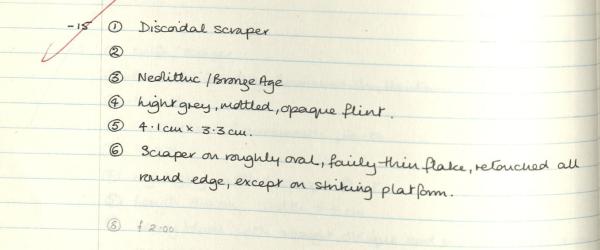 -15 ① Discoidal scraper
②
③ Neolithic / Bronze Age
④ Light grey, mottled, opaque flint.
⑤ 4.1cm x 3.3cm.
⑥ Scraper on roughly oval, fairly thin flake, retouched all
round edge, except on striking platform.
⑧ £2.00